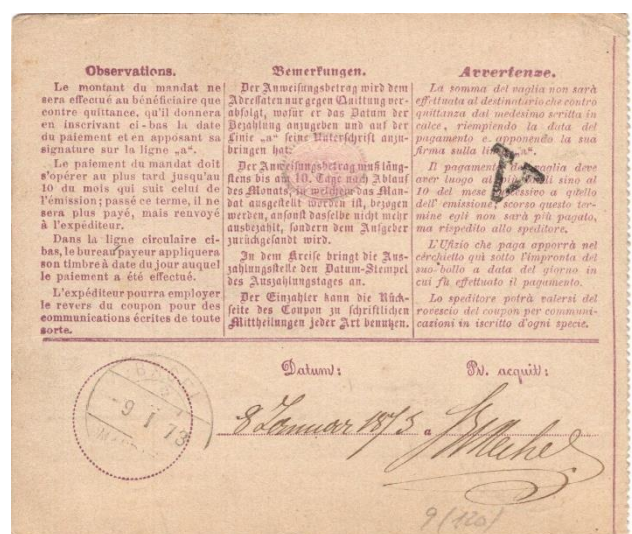 Observations.
Le montant du mandat ne
sera effectué au bénéficiaire que
contre quittance, qu'il donnera
en inscrivant ci-bas la date
du paiement et en apposant sa
signature sur la ligne „a“.
Le paiement du mandat doit
s'opérer au plus tard jusqu'au
10 du mois qui suit celui de
l'émission; passé ce terme, il ne
sera plus payé, mais renvoyé
à l'expéditeur.
Dans la ligne circulaire ci-
bas, le bureau payeur appliquera
son timbre à date du jour auquel
le paiement a été effectué.
L'expéditeur pourra employer
le revers du coupon pour des
communications écrites de toute
sorte.
Bemerkungen.
Der Anweisungsbetrag wird dem
Adressaten nur gegen Quittung ver-
abfolgt, wofür er das Datum der
Bezahlung anzugeben und auf der
Linie „a“ seine Unterschrift anzu-
bringen hat.
Der Anweisungsbetrag muß läng-
stens bis am 10. Tage nach Ablauf
des Monats, in welchem das Man-
dat ausgestellt worden ist, bezogen
werden, ansonst dasselbe nicht mehr
ausbezahlt, sondern dem Aufgeber
zurückgesandt wird.
In dem Kreise bringt die Aus-
zahlungsstelle den Datum-Stempel
des Auszahlungstages an.
Der Einzahler kann die Rück-
seite des Coupon zu schriftlichen
Mittheilungen jeder Art benutzen.
Avvertenze.
La somma del vaglia non sarà
effettuata al destinatario che contro
quittanza dal medesimo scritta in
calce, riempiendo la data del
pagamento e apponendo la sua
firma sulla linea „a“.
Il pagamento del vaglia deve
aver luogo al più tardi sino al
10 del mese successivo a quello
dell' emissione; scorso questo ter-
mine egli non sarà più pagato,
ma rispedito allo speditore.
L'Ufizio che paga apporrà nel
cerchietto quì sotto l'impronta del
suo bollo a data del giorno in
cui fù effettuato il pagamento.
Lo speditore potrà valersi del
rovescio del coupon per communi-
cazioni in iscritto d'ogni specie.
Datum:
Pr. acquit:
BASEL
9 I 73
8 Januar 1873 a
9 (120)